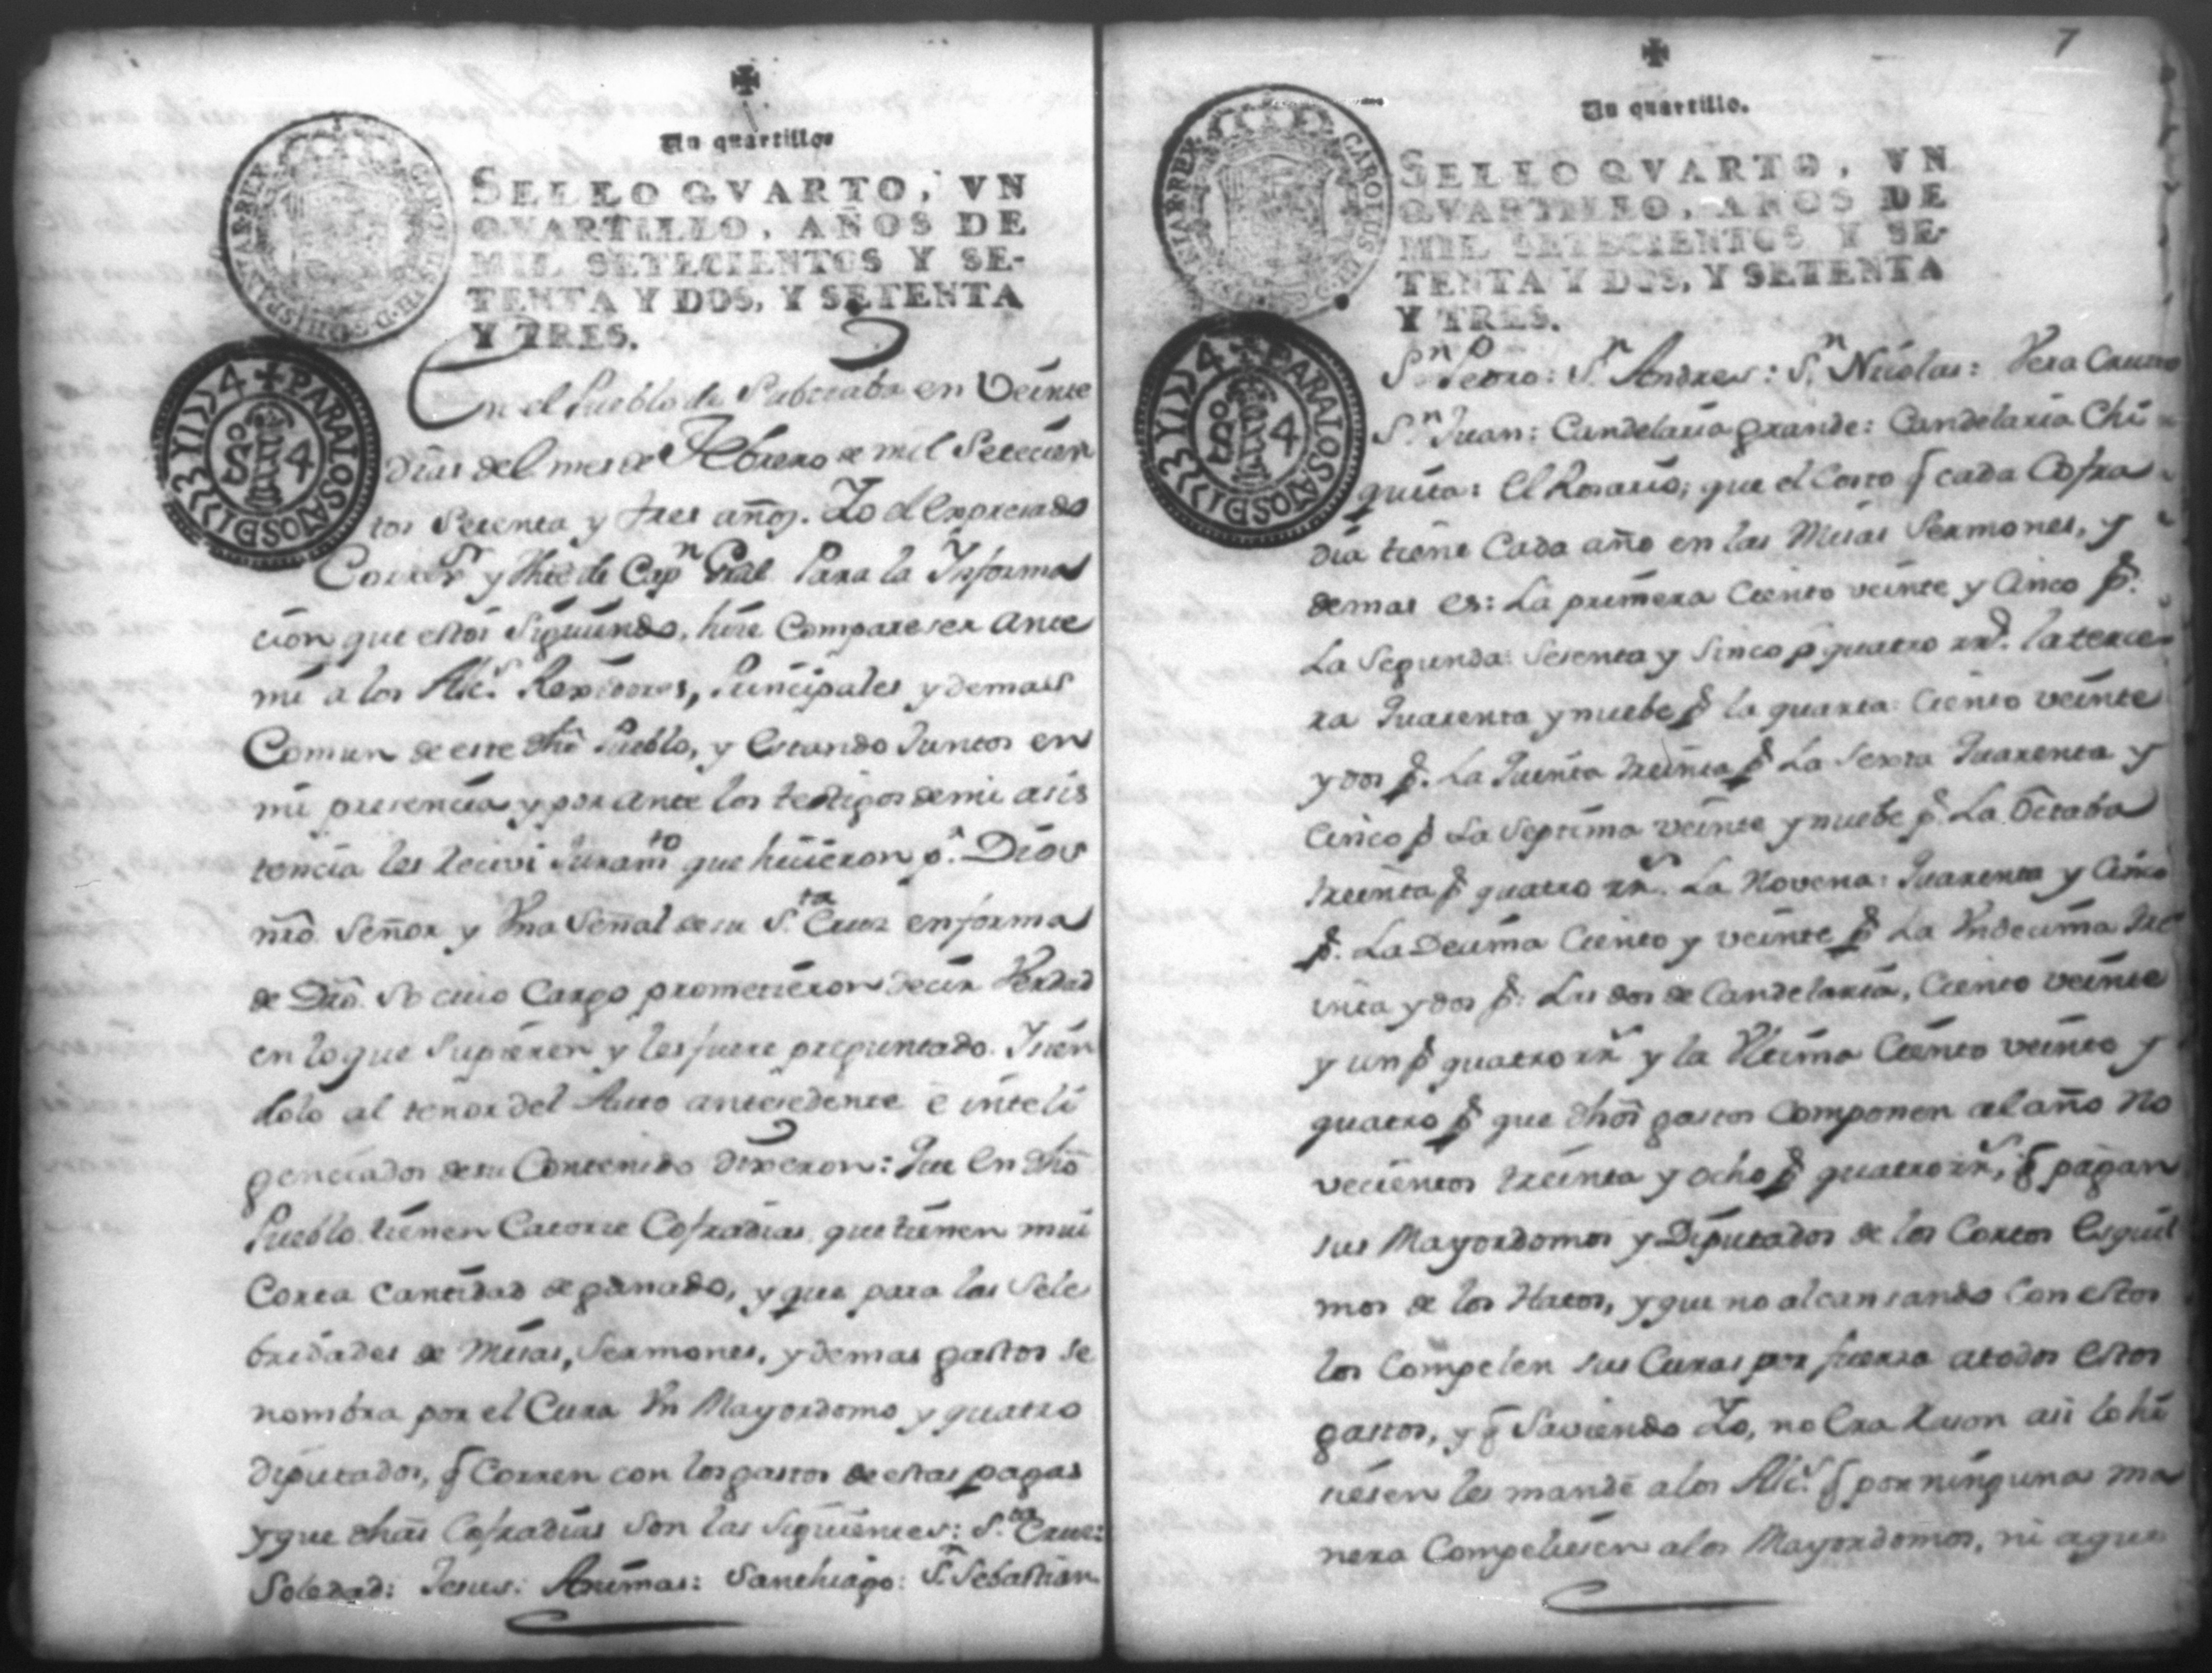 Un quartillo.
SELLO QVARTO, VN
QVARTILLO, AÑOS DE
MIL SETECIENTOS Y SE-
TENTA Y DOS, Y SETENTA
Y TRES.
PARA LOS AÑOS DE 1773 Y 1774
En el Pueblo de Subtiaba en Veinte
dias del mes de Febrero de mil Setecien
tos Setenta y tres años. Yo el expresado
Corrᵒʳ y Thᵉ de Capⁿ Gral Para la Informa
cion que estoi Siguiendo, hise Compareser ante
mi a los Alcˢ. Rexidores, Principales y demas
Comun de este dhō Pueblo, y Estando Juntos en
mi presencia y por ante los testigos de mi asis
tencia les Recivi Juramᵗᵒ que hicieron pʳ. Dios
nrō. Señor y Vna Señal de su S.ᵗᵃ Cruz en forma
de Drō. So cuio Cargo prometieron decir Verdad
en lo que Supieren y les fuere preguntado. Isien
dolo al tenor del Auto antesedente e inteli
genciados de su Contenido dixeron: Que en dhō
Pueblo tienen Catorce Cofradias, que tienen mui
Corta cantidad de ganado, y que para las Sele
bridades de Misas, Sermones, y demas gastos se
nombra por el Cura Vn Mayordomo y quatro
diputados, q̄ Corren con los gastos de estas pagas
y que dhas̄ Cofradias Son las Siguientes: S.ᵗᵃ Cruz:
Soledad: Jesus: Animas: Santhiago: Sⁿ. Sebastian
7
Un quartillo.
SELLO QVARTO, VN
QVARTILLO, AÑOS DE
MIL SETECIENTOS Y SE-
TENTA Y DOS, Y SETENTA
Y TRES.
PARA LOS AÑOS DE 1773 Y 1774
Sⁿ Pedro: Sⁿ. Andres: Sⁿ. Nicolas: Vera Cruz
Sⁿ. Juan: Candelaria grande: Candelaria Chi
quita: El Rosario; que el Costo q̄ cada Cofra
dia tiene Cada año en las Misas Sermones, y
demas es: La primera Ciento veinte y Cinco pˢ.
La Segunda: Sesenta y Sinco pˢ quatro rrˢ. la terce
ra Quarenta y nuebe pˢ la quarta: Ciento veinte
y dos pˢ. La Quinta treinta pˢ La Sexta Quarenta y
Cinco pˢ La Septima veinte y nuebe pˢ. La Octaba
treinta pˢ quatro rrˢ. La Novena: Quarenta y Cinco
pˢ. La Decima Ciento y veinte pˢ La Vndecima tre
inta y dos pˢ: Las dos de Candelaria, Ciento veinte
y un pˢ quatro rrˢ y la Vltima Ciento veinte y
quatro pˢ que dhos̄ gastos Componen al año No
vecientos treinta y ocho pˢ quatro rrˢ, q̄ pagan
sus Mayordomos y Diputados de los Cortos Esquil
mos de los Hatos, y que no alcansando Con estos
los Compelen sus Curas por fuersa a todos Estos
gastos, y q̄ Saviendo Yo, no Era Rason asi lo hi
siesen les mandé a los Alcˢ. q̄ por ninguna ma
nera Compeliesen a los Mayordomos, ni aque